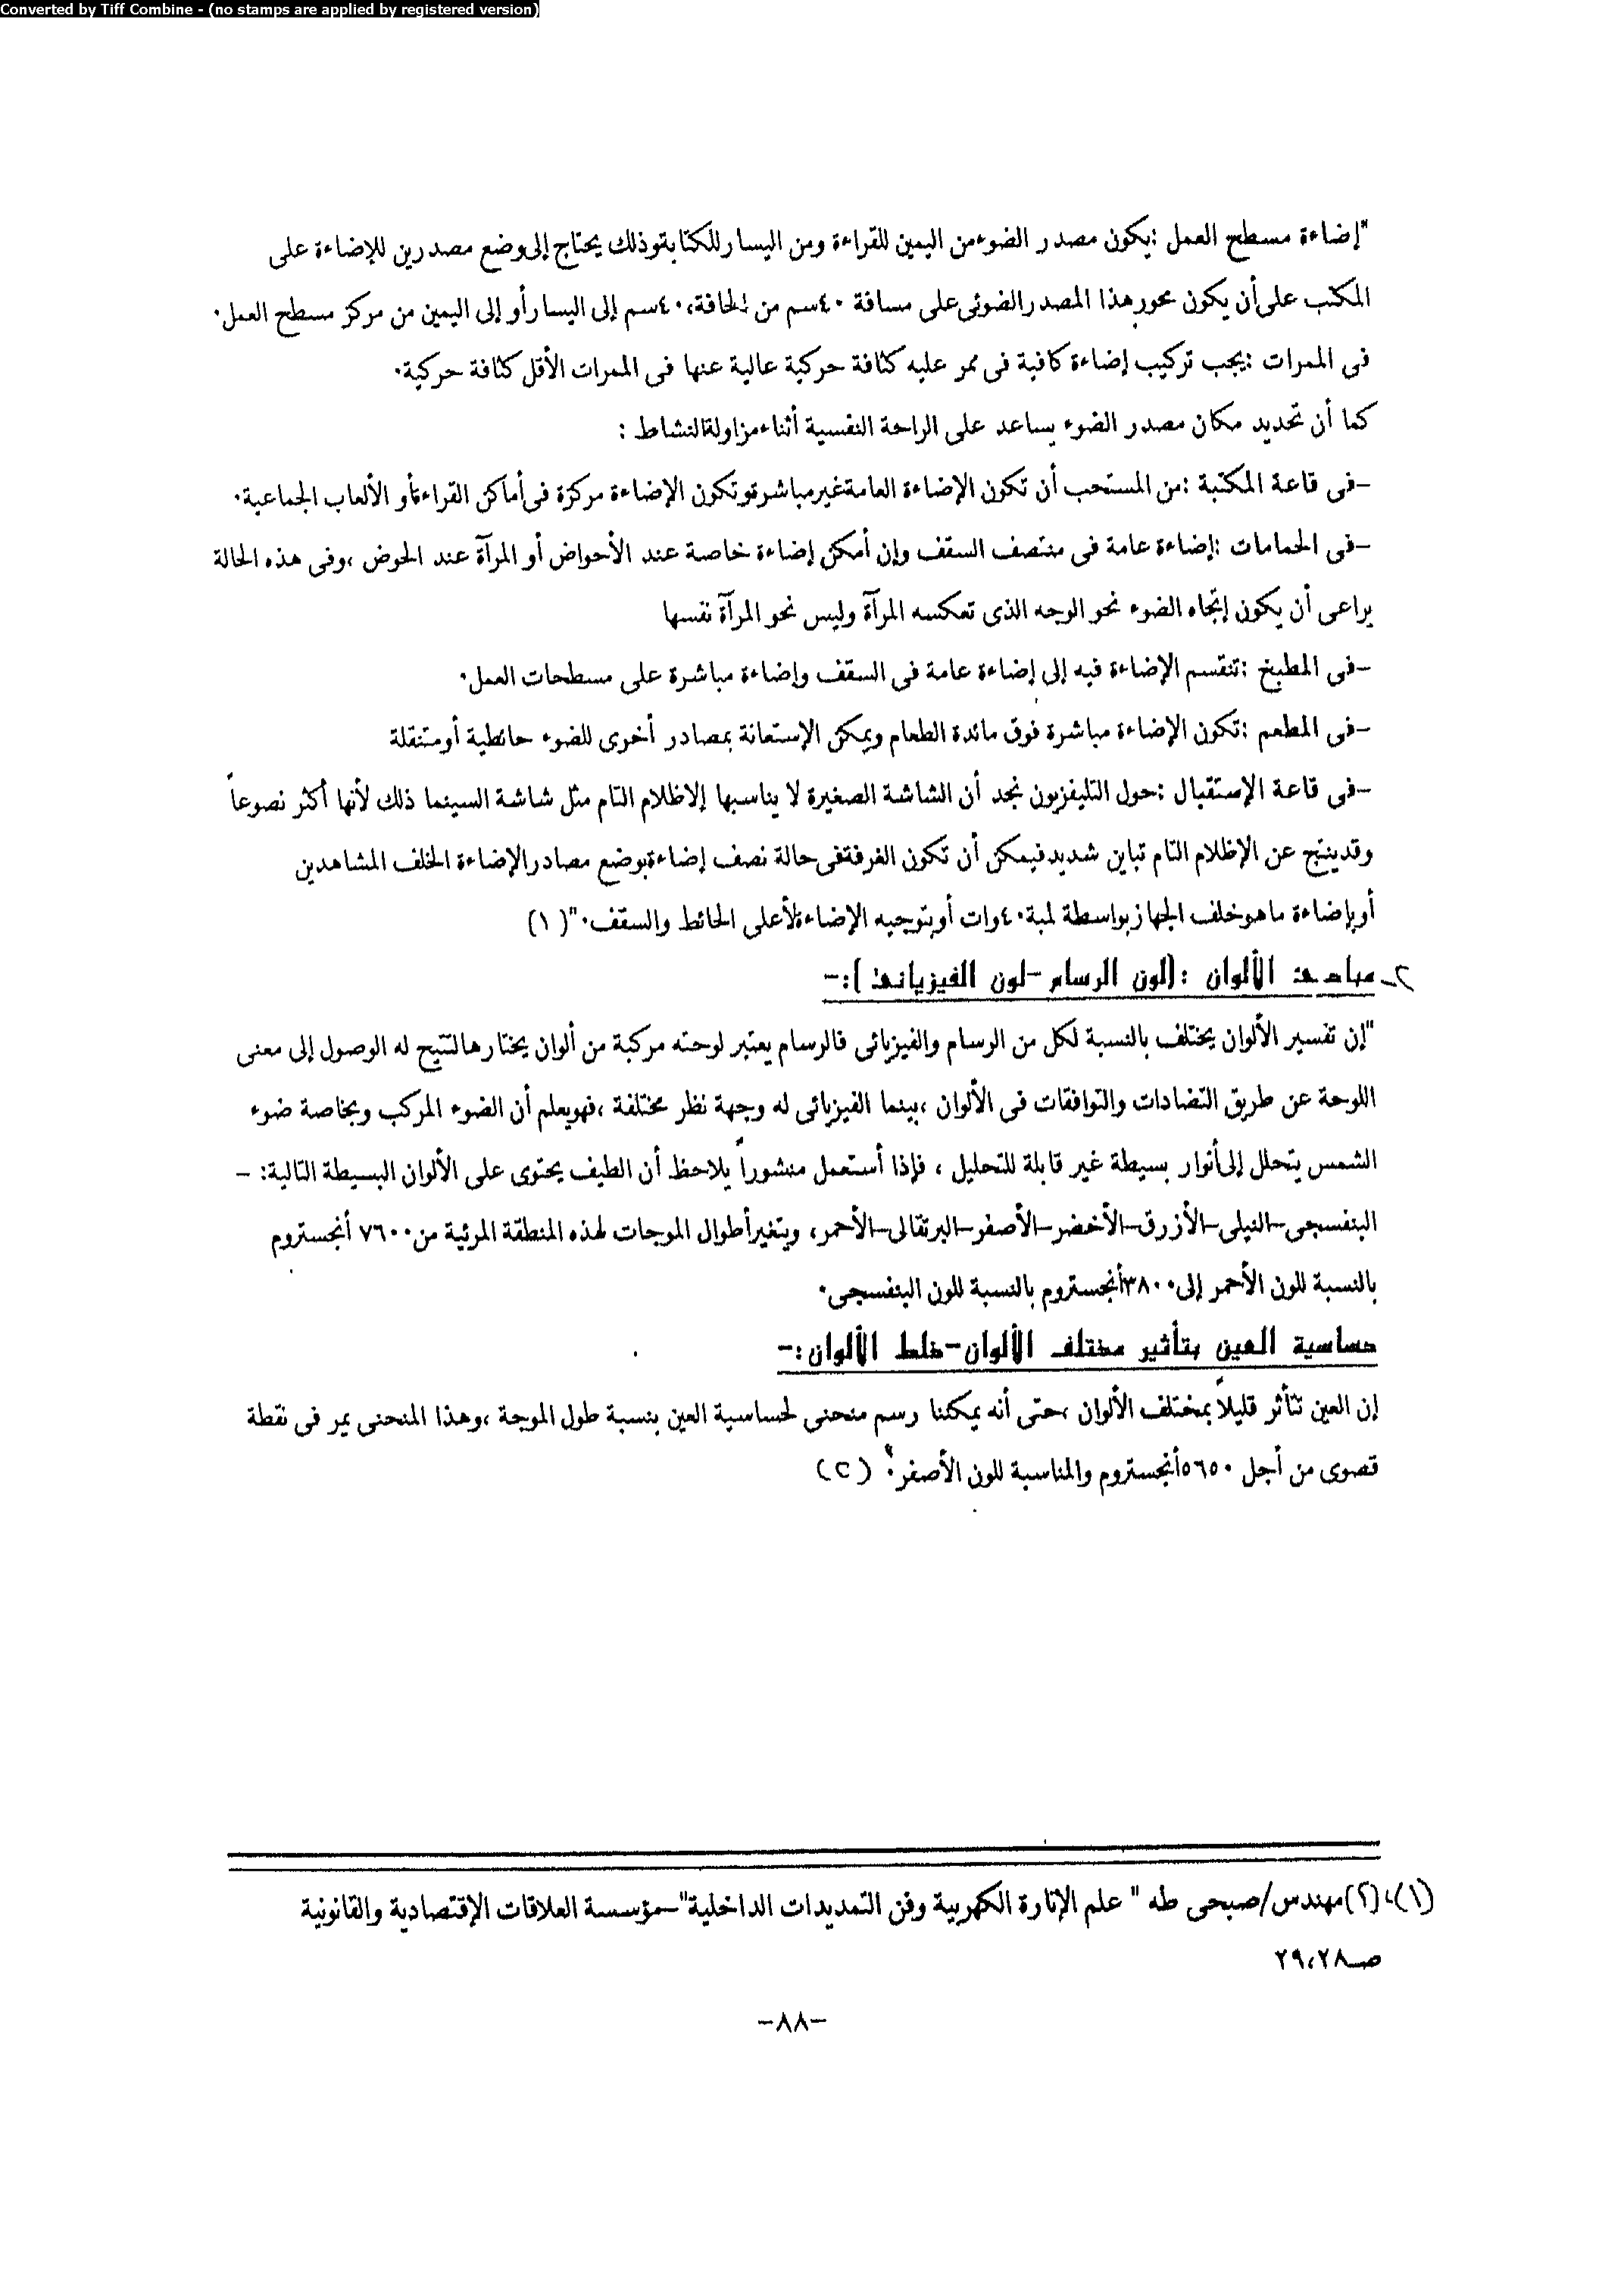 Converted by Tiff Combine - (no stamps are applied by registered version)
"إضاءة مسطح العمل :يكون مصدر الضوءمن اليمين للقراءة ومن اليسارللكتابةوذلك يحتاج إلى وضع مصدرين للإضاءة على
المكتب على أن يكون محورهذا المصدرالضوئى على مسافة ٤٠سم من الحافة، ٤٠سم إلى اليسارأو إلى اليمين من مركز مسطح العمل.
فى الممرات :يجب تركيب إضاءة كافية فى ممر عليه كثافة حركية عالية عنها فى الممرات الأقل كثافة حركية.
كما أن تحديد مكان مصدر الضوء يساعد على الراحة النفسية أثناءمزاولةالنشاط :
-فى قاعة المكتبة :من المستحب أن تكون الإضاءة العامةغيرمباشرةوتكون الإضاءة مركزة فى أماكن القراءةأو الألعاب الجماعية.
-فى الحمامات :إضاءة عامة فى منتصف السقف وإن أمكن إضاءة خاصة عند الأحواض أو المرآة عند الحوض ،وفى هذه الحالة
يراعى أن يكون إتجاه الضوء نحو الوجه الذى تعكسه المرآة وليس نحو المرآة نفسها
-فى المطبخ :تنقسم الإضاءة فيه إلى إضاءة عامة فى السقف وإضاءة مباشرة على مسطحات العمل.
-فى المطعم :تكون الإضاءة مباشرة فوق مائدة الطعام ويمكن الإستعانة بمصادر أخرى للضوء حائطية أومتنقلة
-فى قاعة الإستقبال :حول التليفزيون نجد أن الشاشة الصغيرة لا يناسبها الإظلام التام مثل شاشة السينما ذلك لأنها أكثر نصوعاً
وقدينتج عن الإظلام التام تباين شديدفيمكن أن تكون الغرفةفى حالة نصف إضاءةبوضع مصادرالإضاءة الخلف المشاهدين
أوبإضاءة ماهوخلف الجهازبواسطة لمبة ٤٠وات أوبتوجيه الإضاءةلأعلى الحائط والسقف."(١)
٢- مبادىء الألوان :(لون الرسام -لون الفيزيائى ):-
"إن تفسير الألوان يختلف بالنسبة لكل من الرسام والفيزيائى فالرسام يعتبر لوحته مركبة من ألوان يختارهالتتيح له الوصول إلى معنى
اللوحة عن طريق التضادات والتوافقات فى الألوان ،بينما الفيزيائى له وجهة نظر مختلفة ،فهويعلم أن الضوء المركب وبخاصة ضوء
الشمس يتحلل إلى أنوار بسيطة غير قابلة للتحليل ، فإذا أستعمل منشوراً يلاحظ أن الطيف يحتوى على الألوان البسيطة التالية: -
البنفسجى-النيلى-الأزرق-الأخضر-الأصفر-البرتقالى-الأحمر، ويتغيرأطوال الموجات لهذه المنطقة المرئية من ٧٦٠٠ أنجستروم
بالنسبة للون الأحمر إلى ٣٨٠٠أنجستروم بالنسبة للون البنفسجى.
حساسية العين بتأثير مختلف الألوان-خلط الألوان:-
إن العين تتأثر قليلاً بمختلف الألوان ،حتى أنه يمكننا رسم منحنى لحساسية العين بنسبة طول الموجة ،وهذا المنحنى يمر فى نقطة
قصوى من أجل ٥٦٥٠أنجستروم والمناسبة للون الأصفر." (٢)
(١)،(٢)مهندس/صبحى طه " علم الإنارة الكهربية وفن التمديدات الداخلية"-مؤسسة العلاقات الإقتصادية والقانونية
صـ٢٩،٢٨
-٨٨-